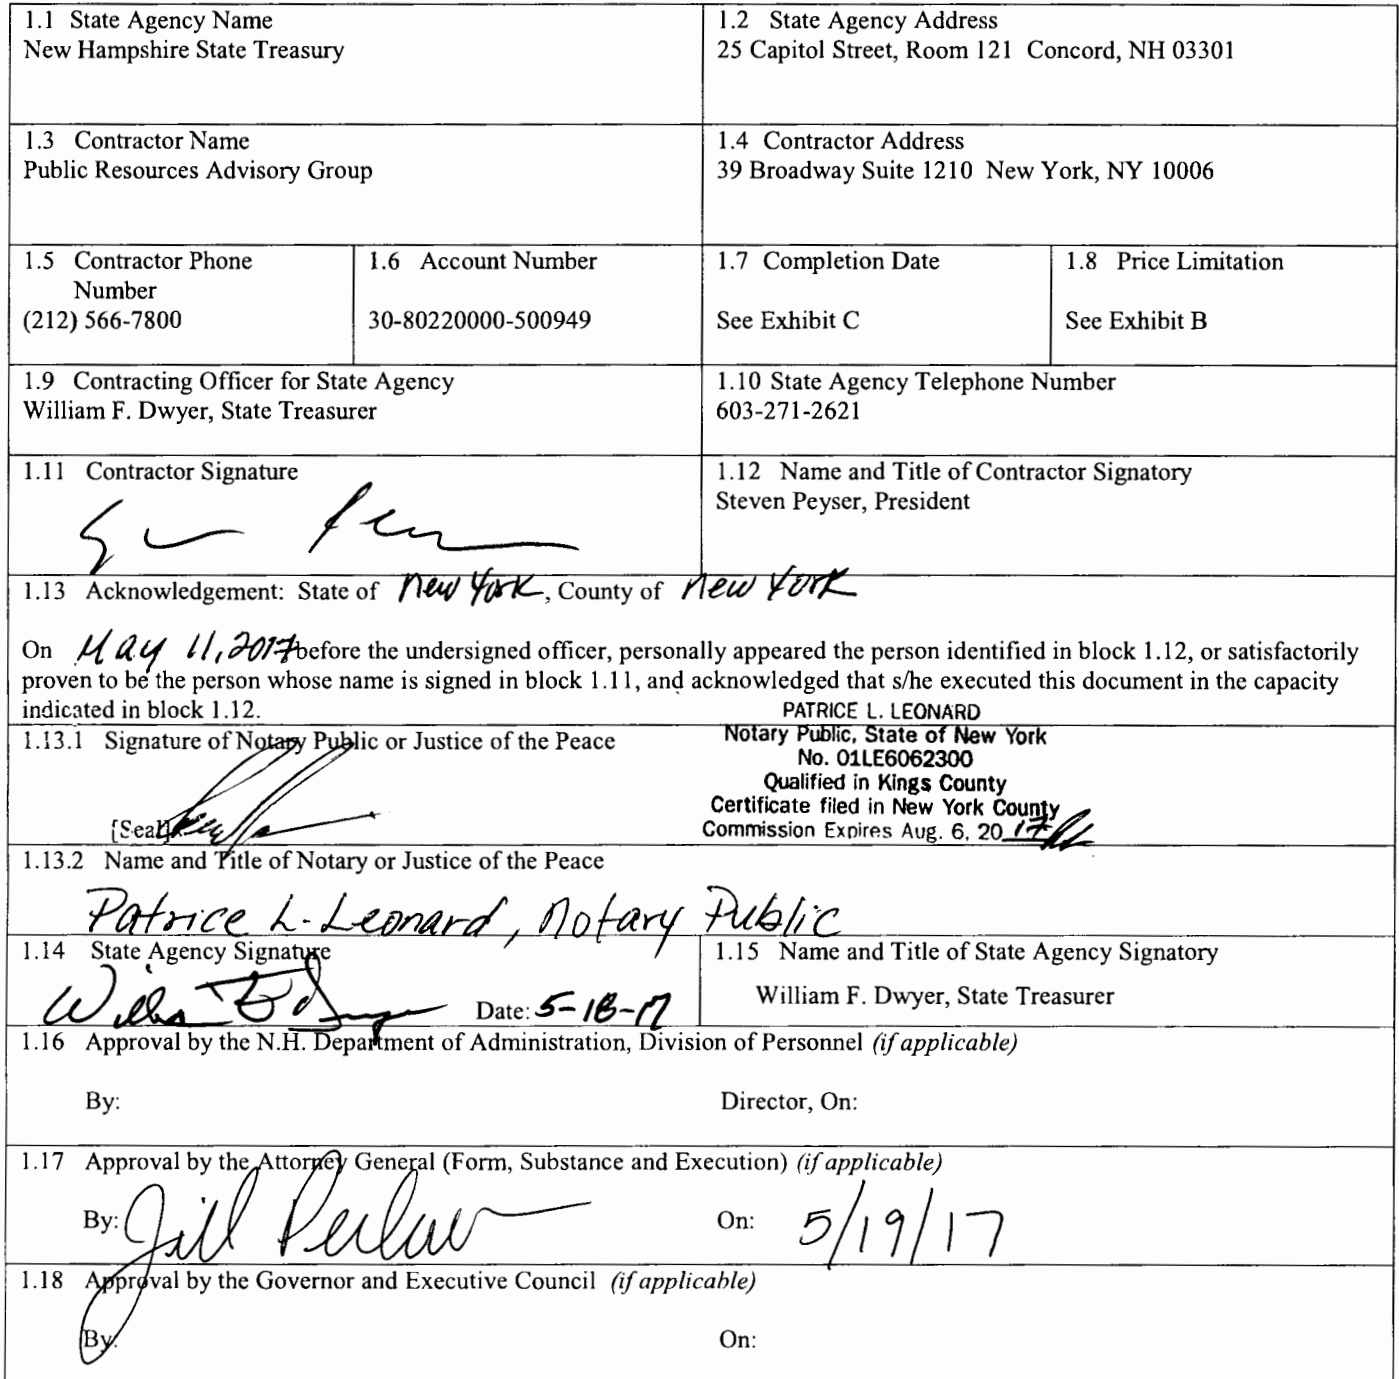 1.1 State Agency Name
New Hampshire State Treasury
1.2 State Agency Address
25 Capitol Street, Room 121 Concord, NH 03301
1.3 Contractor Name
Public Resources Advisory Group
1.4 Contractor Address
39 Broadway Suite 1210 New York, NY 10006
1.5 Contractor Phone
Number
(212) 566-7800
1.6 Account Number
30-80220000-500949
1.7 Completion Date
See Exhibit C
1.8 Price Limitation
See Exhibit B
1.9 Contracting Officer for State Agency
William F. Dwyer, State Treasurer
1.10 State Agency Telephone Number
603-271-2621
1.11 Contractor Signature
1.12 Name and Title of Contractor Signatory
Steven Peyser, President
1.13 Acknowledgement: State of New York, County of New York
On May 11, 2017 before the undersigned officer, personally appeared the person identified in block 1.12, or satisfactorily
proven to be the person whose name is signed in block 1.11, and acknowledged that s/he executed this document in the capacity
indicated in block 1.12.
PATRICE L. LEONARD
Notary Public, State of New York
No. 01LE6062300
Qualified in Kings County
Certificate filed in New York County
Commission Expires Aug. 6, 20 17
1.13.1 Signature of Notary Public or Justice of the Peace
[Seal]
1.13.2 Name and Title of Notary or Justice of the Peace
Patrice L. Leonard, Notary Public
1.14 State Agency Signature
Date: 5-18-17
1.15 Name and Title of State Agency Signatory
William F. Dwyer, State Treasurer
1.16 Approval by the N.H. Department of Administration, Division of Personnel (if applicable)
By:
Director, On:
1.17 Approval by the Attorney General (Form, Substance and Execution) (if applicable)
By: Jill Perlow
On: 5/19/17
1.18 Approval by the Governor and Executive Council (if applicable)
By:
On: